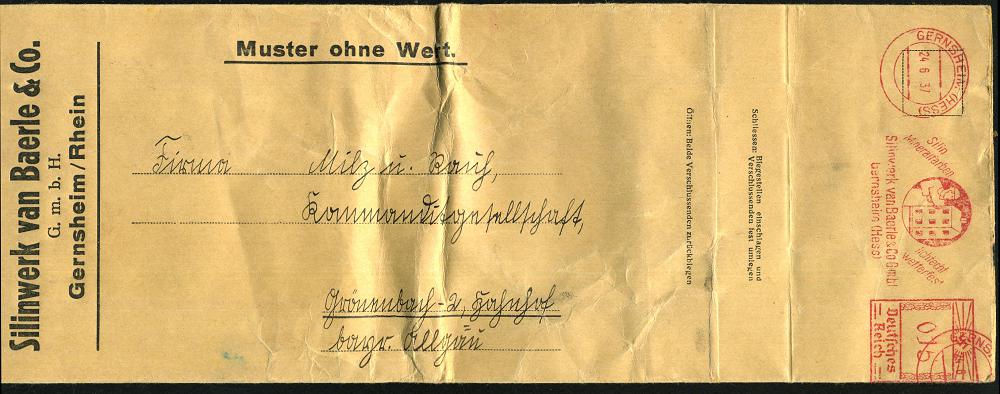 Silinwerk van Baerle & Co.
G. m. b. H.
Gernsheim/Rhein
Muster ohne Wert.
Firma Milz u. Rauh,
Kommanditgesellschaft,
Grönenbach - Bahnhof
bayr. Allgäu
Öffnen: Beide Verschlussenden zurückbiegen
Schliessen: Biegestellen einschlagen und
Verschlussenden fest umlegen
GERNSHEIM (HESS)
24 6 37
Silin
Mineralfarben
lichtecht
wetterfest
Silinwerk van Baerle & Co GmbH
Gernsheim (Hess)
Deutsches
Reich
GERNS